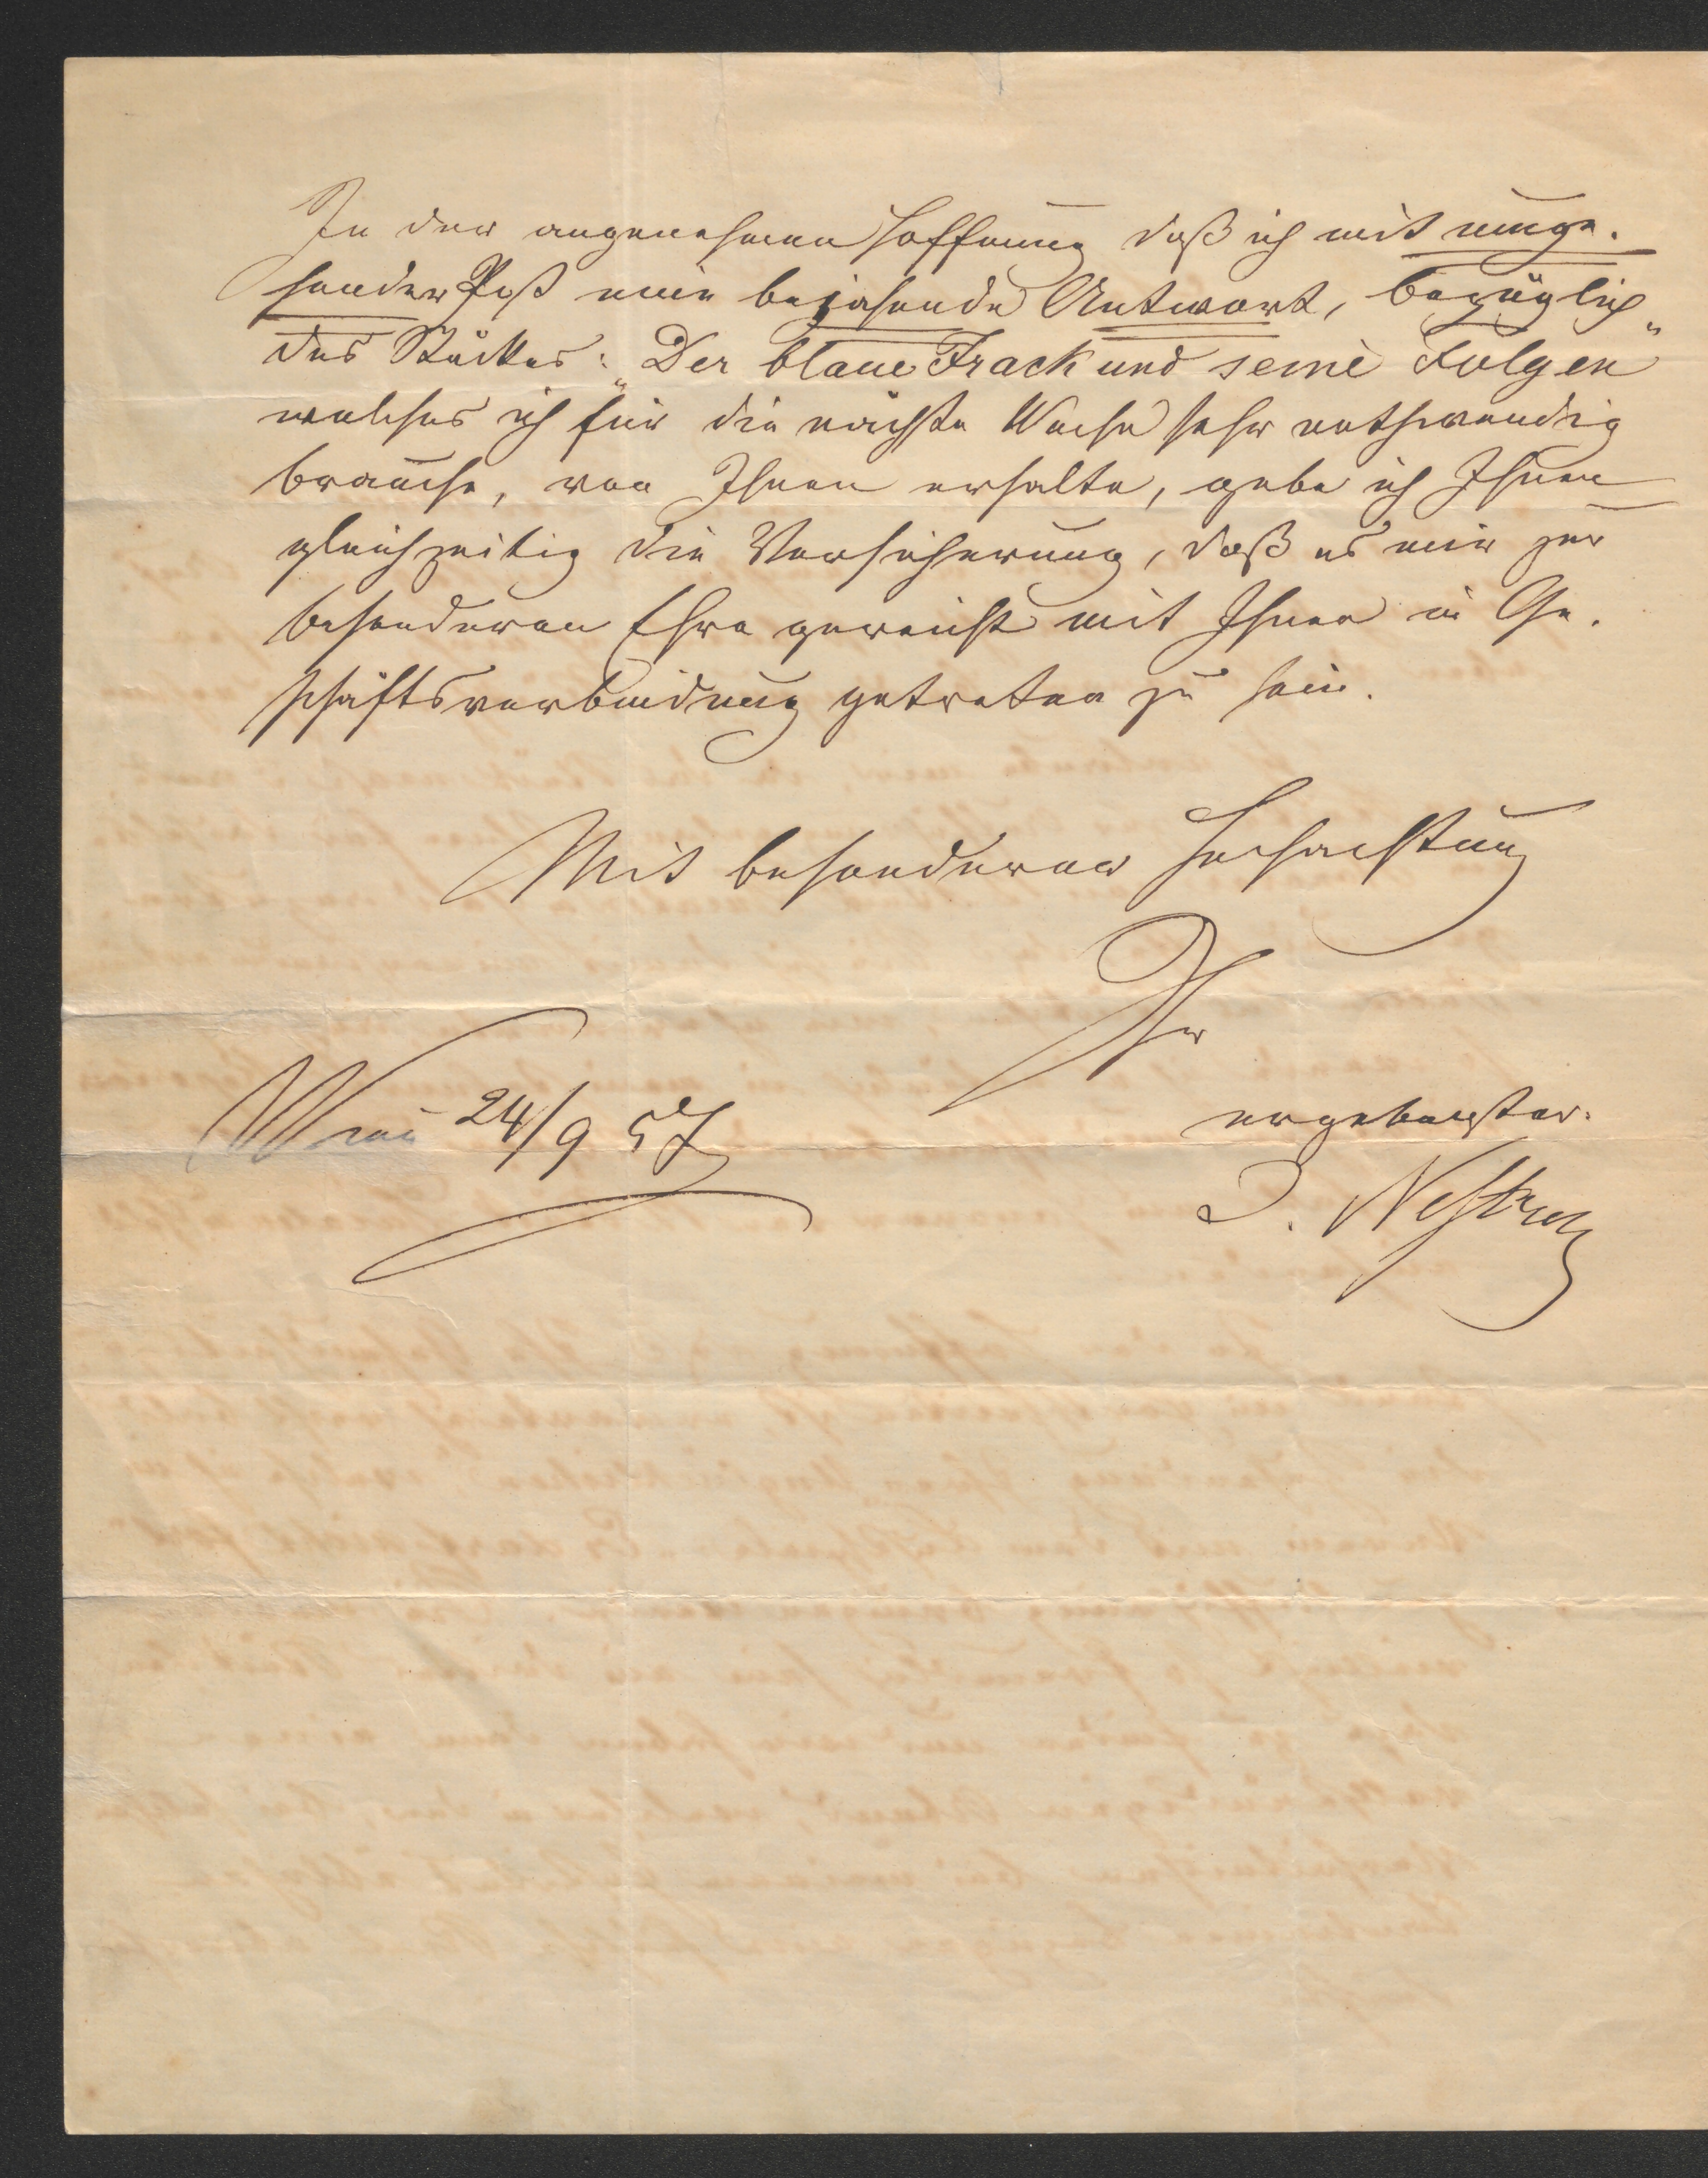 In der angenehmen Hoffnung daß ich mit umge-
hender Post eine bejahende Antwort, bezüglich
des Stückes: „Der blaue Frack und seine Folgen“
welches ich für die nächste Woche sehr nothwendig
brauche, von Ihnen erhalte, gebe ich Ihnen
gleichzeitig die Versicherung, daß es mir zur
besonderen Ehre gereicht mit Ihnen in Ge-
schäftsverbindung getreten zu sein.
Mit besonderer Hochachtung
Ihr
Wien 24/9 57
ergebenster
J. Nestroy